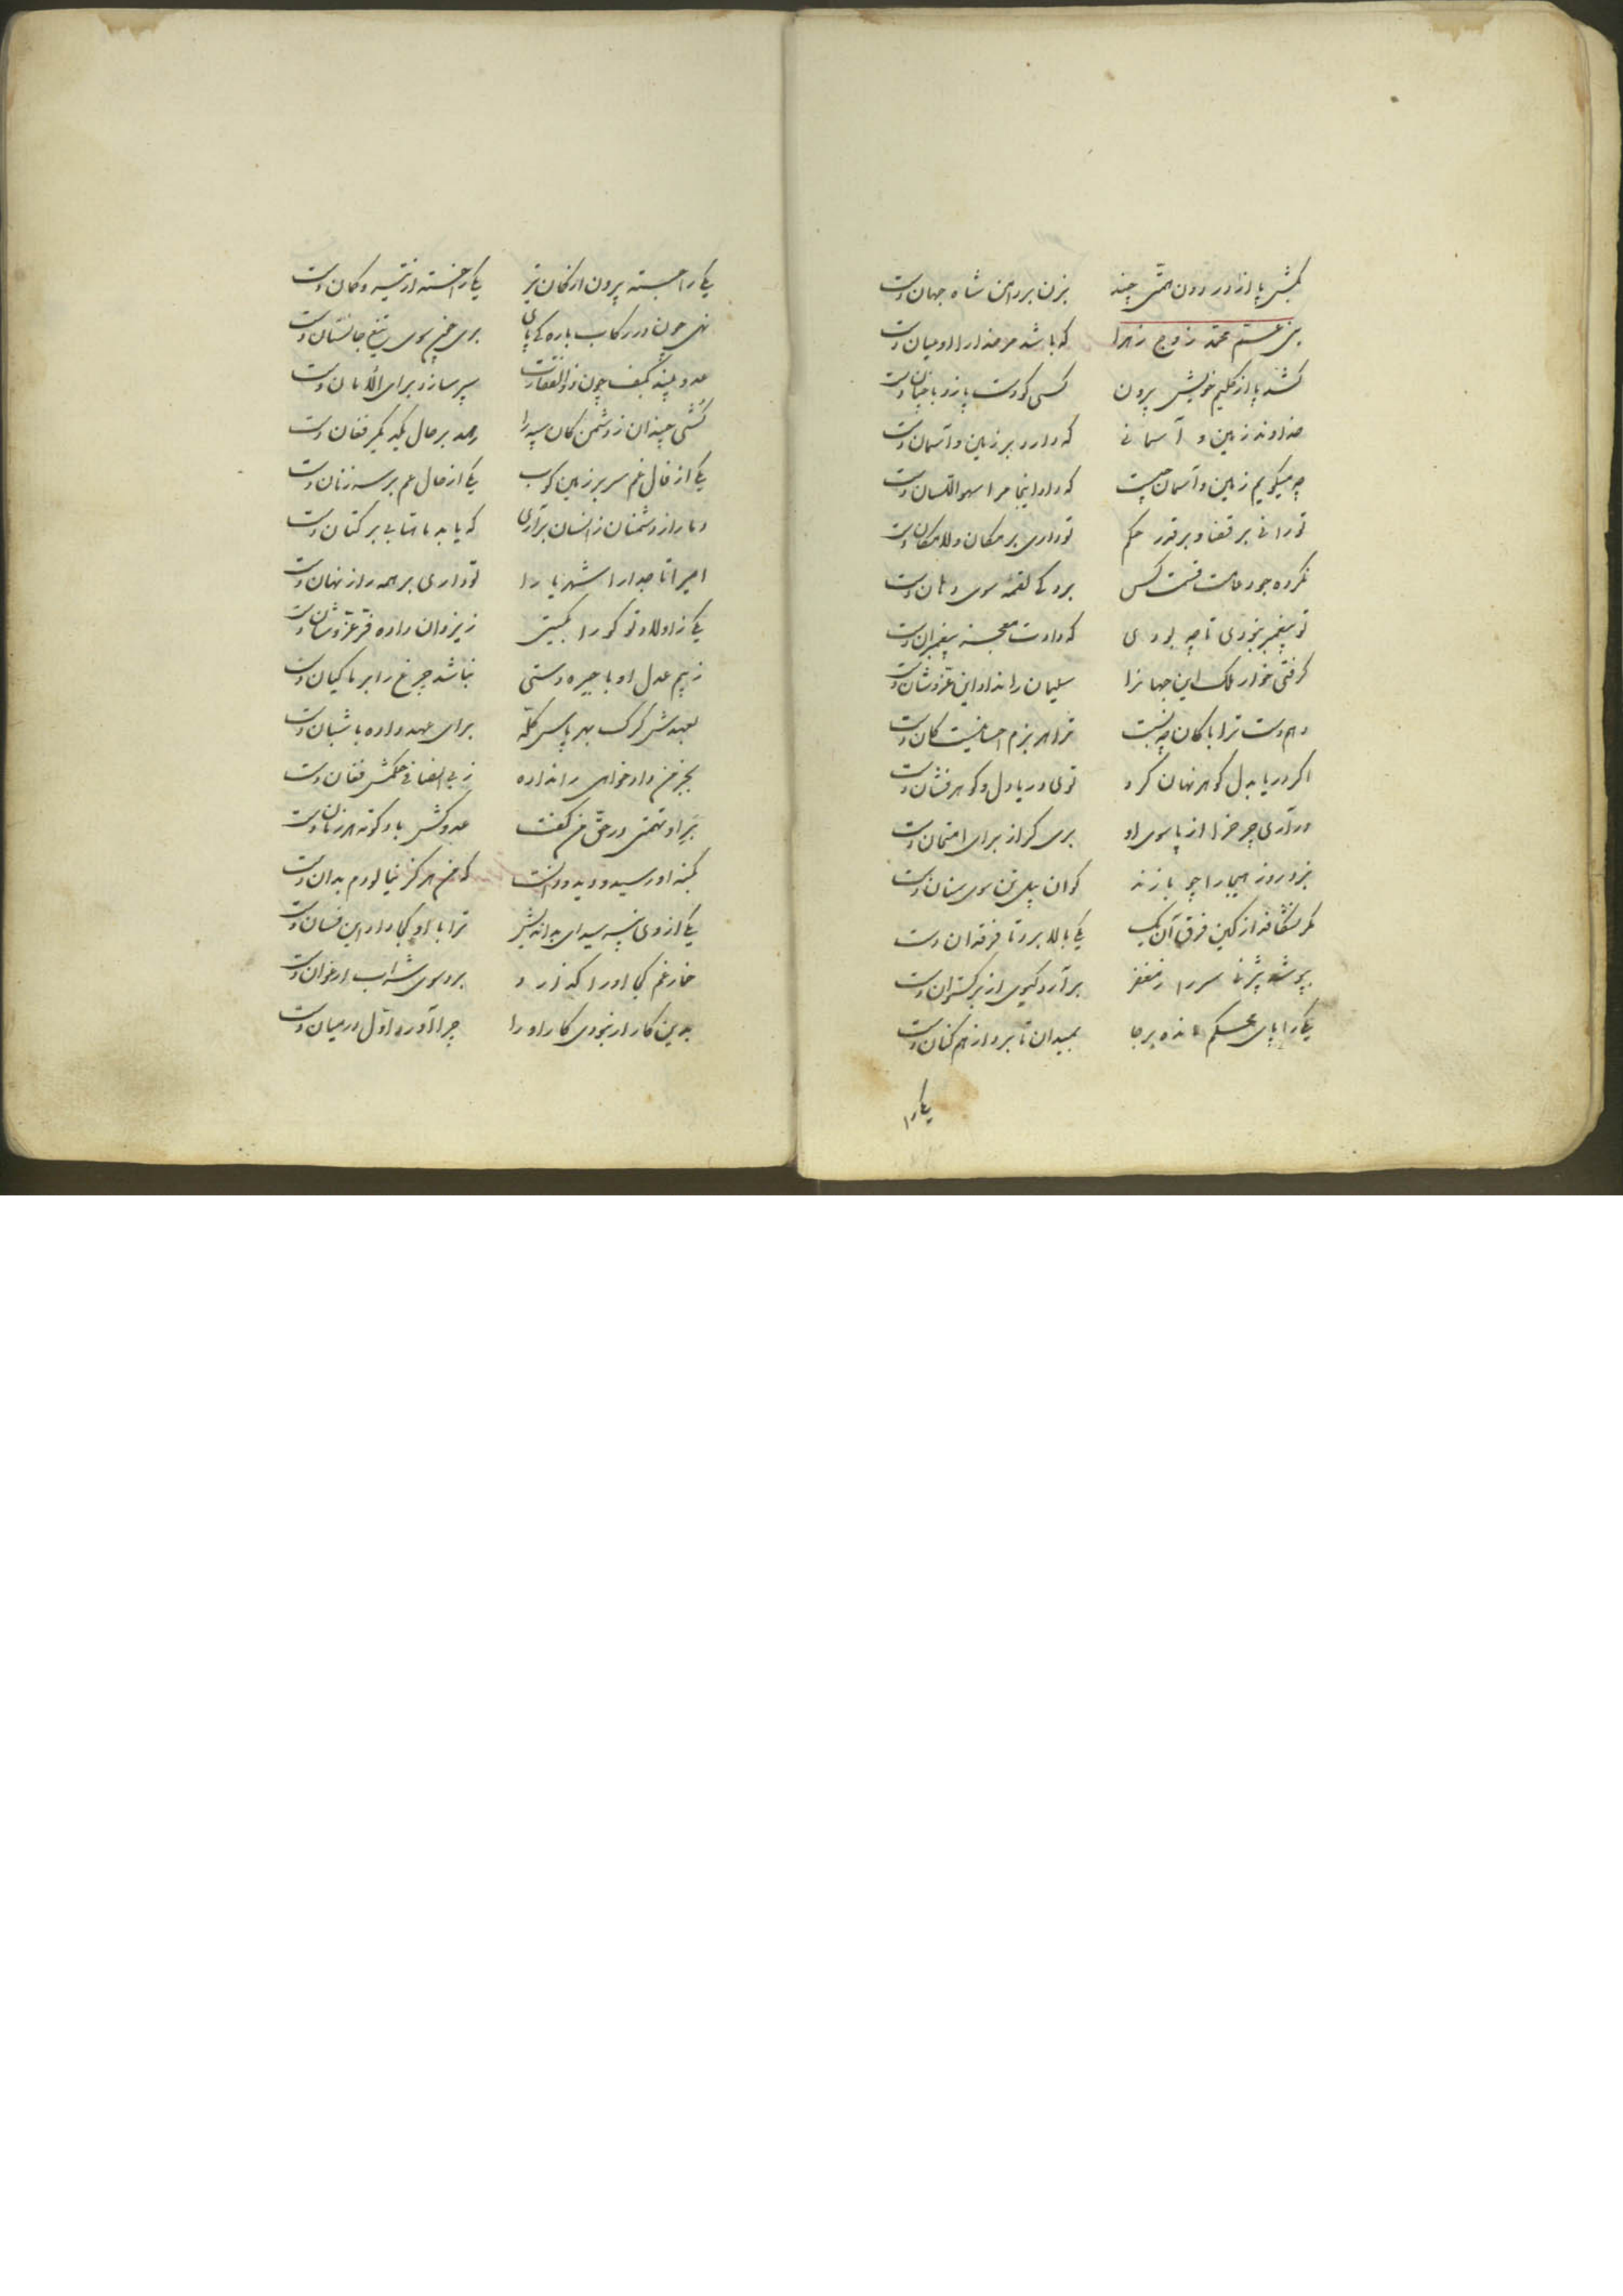 بکش پا از در دون همتی چند بزن بر دامن شاه جهان دست
بنی عم محمد زوج زهرا که باشد مر خدا را او میان دست
کشد پا از گلیم خویش بیرون کسی کو دست یازد با چنان دست
خداوند زمین و آسمانی که دارد بر زمین و آسمان دست
چه میگویم زمین و آسمان چیست که داد اینجا مرا سهو اللسان دست
تو رانی بر قضا و بر قدر حکم تو داری بر مکان و لامکان دست
نکرده جود عامت قسمت کس برد کی لقمه سوی دهان دست
تو پیغمبر نبودی تا چه بودی که دادت معجز پیغمبران دست
گرفتی خوار ملک این جهانرا سلیمان را نداد این عز و شان دست
دم دست ترا با کان چه نسبت ترا در بزم احسانیست کان دست
اگر دریا بدل گوهر نهان کرد توی دریا دل و گوهر فشان دست
در آری چرخ را از پا سوی او بری گر از برای امتحان دست
نبرد روز هیجا را چو یازند گوان پیل تن سوی سنان دست
مگر بشکافد از کین فرق آن یک یکی بالا برد تا فرقدان دست
بپوشد تا سر را ز مغفر بر آرد کیوی از برگستوان دست
یکی را پای محکم مانده بر جا بمیدان تا برد از هم کنان دست
یکی را
یکی را جسته بیرون از کمان تیر یکی را خسته از تیر و کمان دست
نهی چون در رکاب باره کی پای بری چون سوی تیغ جانستان دست
عدو بیند بکف چون ذو الفقارت سپر سازد برای الامان دست
کشی چندان ز دشمن کان سپه را رسد بر حال یکدیگر فغان دست
یکی از فال غم سر بر زمین کوب یکی از حال غم بر سر زنان دست
دمار از دشمنان ز انسان برآری که یابد ماهتابی بر کتان دست
امیرا تاجدارا شهریارا تو داری بر همه راز نهان دست
یکی ز اولاد تو کو را بگیتی ز یزدان داده فر و عز و شان دست
ز بیم عدل او با چیره دستی نباشد چرغ را بر ماکیان دست
بعهدش گرگ بهر پاس گله برای عهد داده با شبان دست
بجز من داد خواهی را نداده ز بی انصافی حکمش فغان دست
بر او تهمتی در حق من گفت عدو کش باد کوته هر زمان دست
بکنه او رسید و دید و دانست که من هرگز نیالودم بدان دست
یکی از وی نپرسید ای بد اندیش ترا با او کجا داد این فسان دست
خمار غم کجا او را گذارد برد سوی شراب ارغوان دست
بدین کار ار نبودی کار او را چرا آورد اول در میان دست